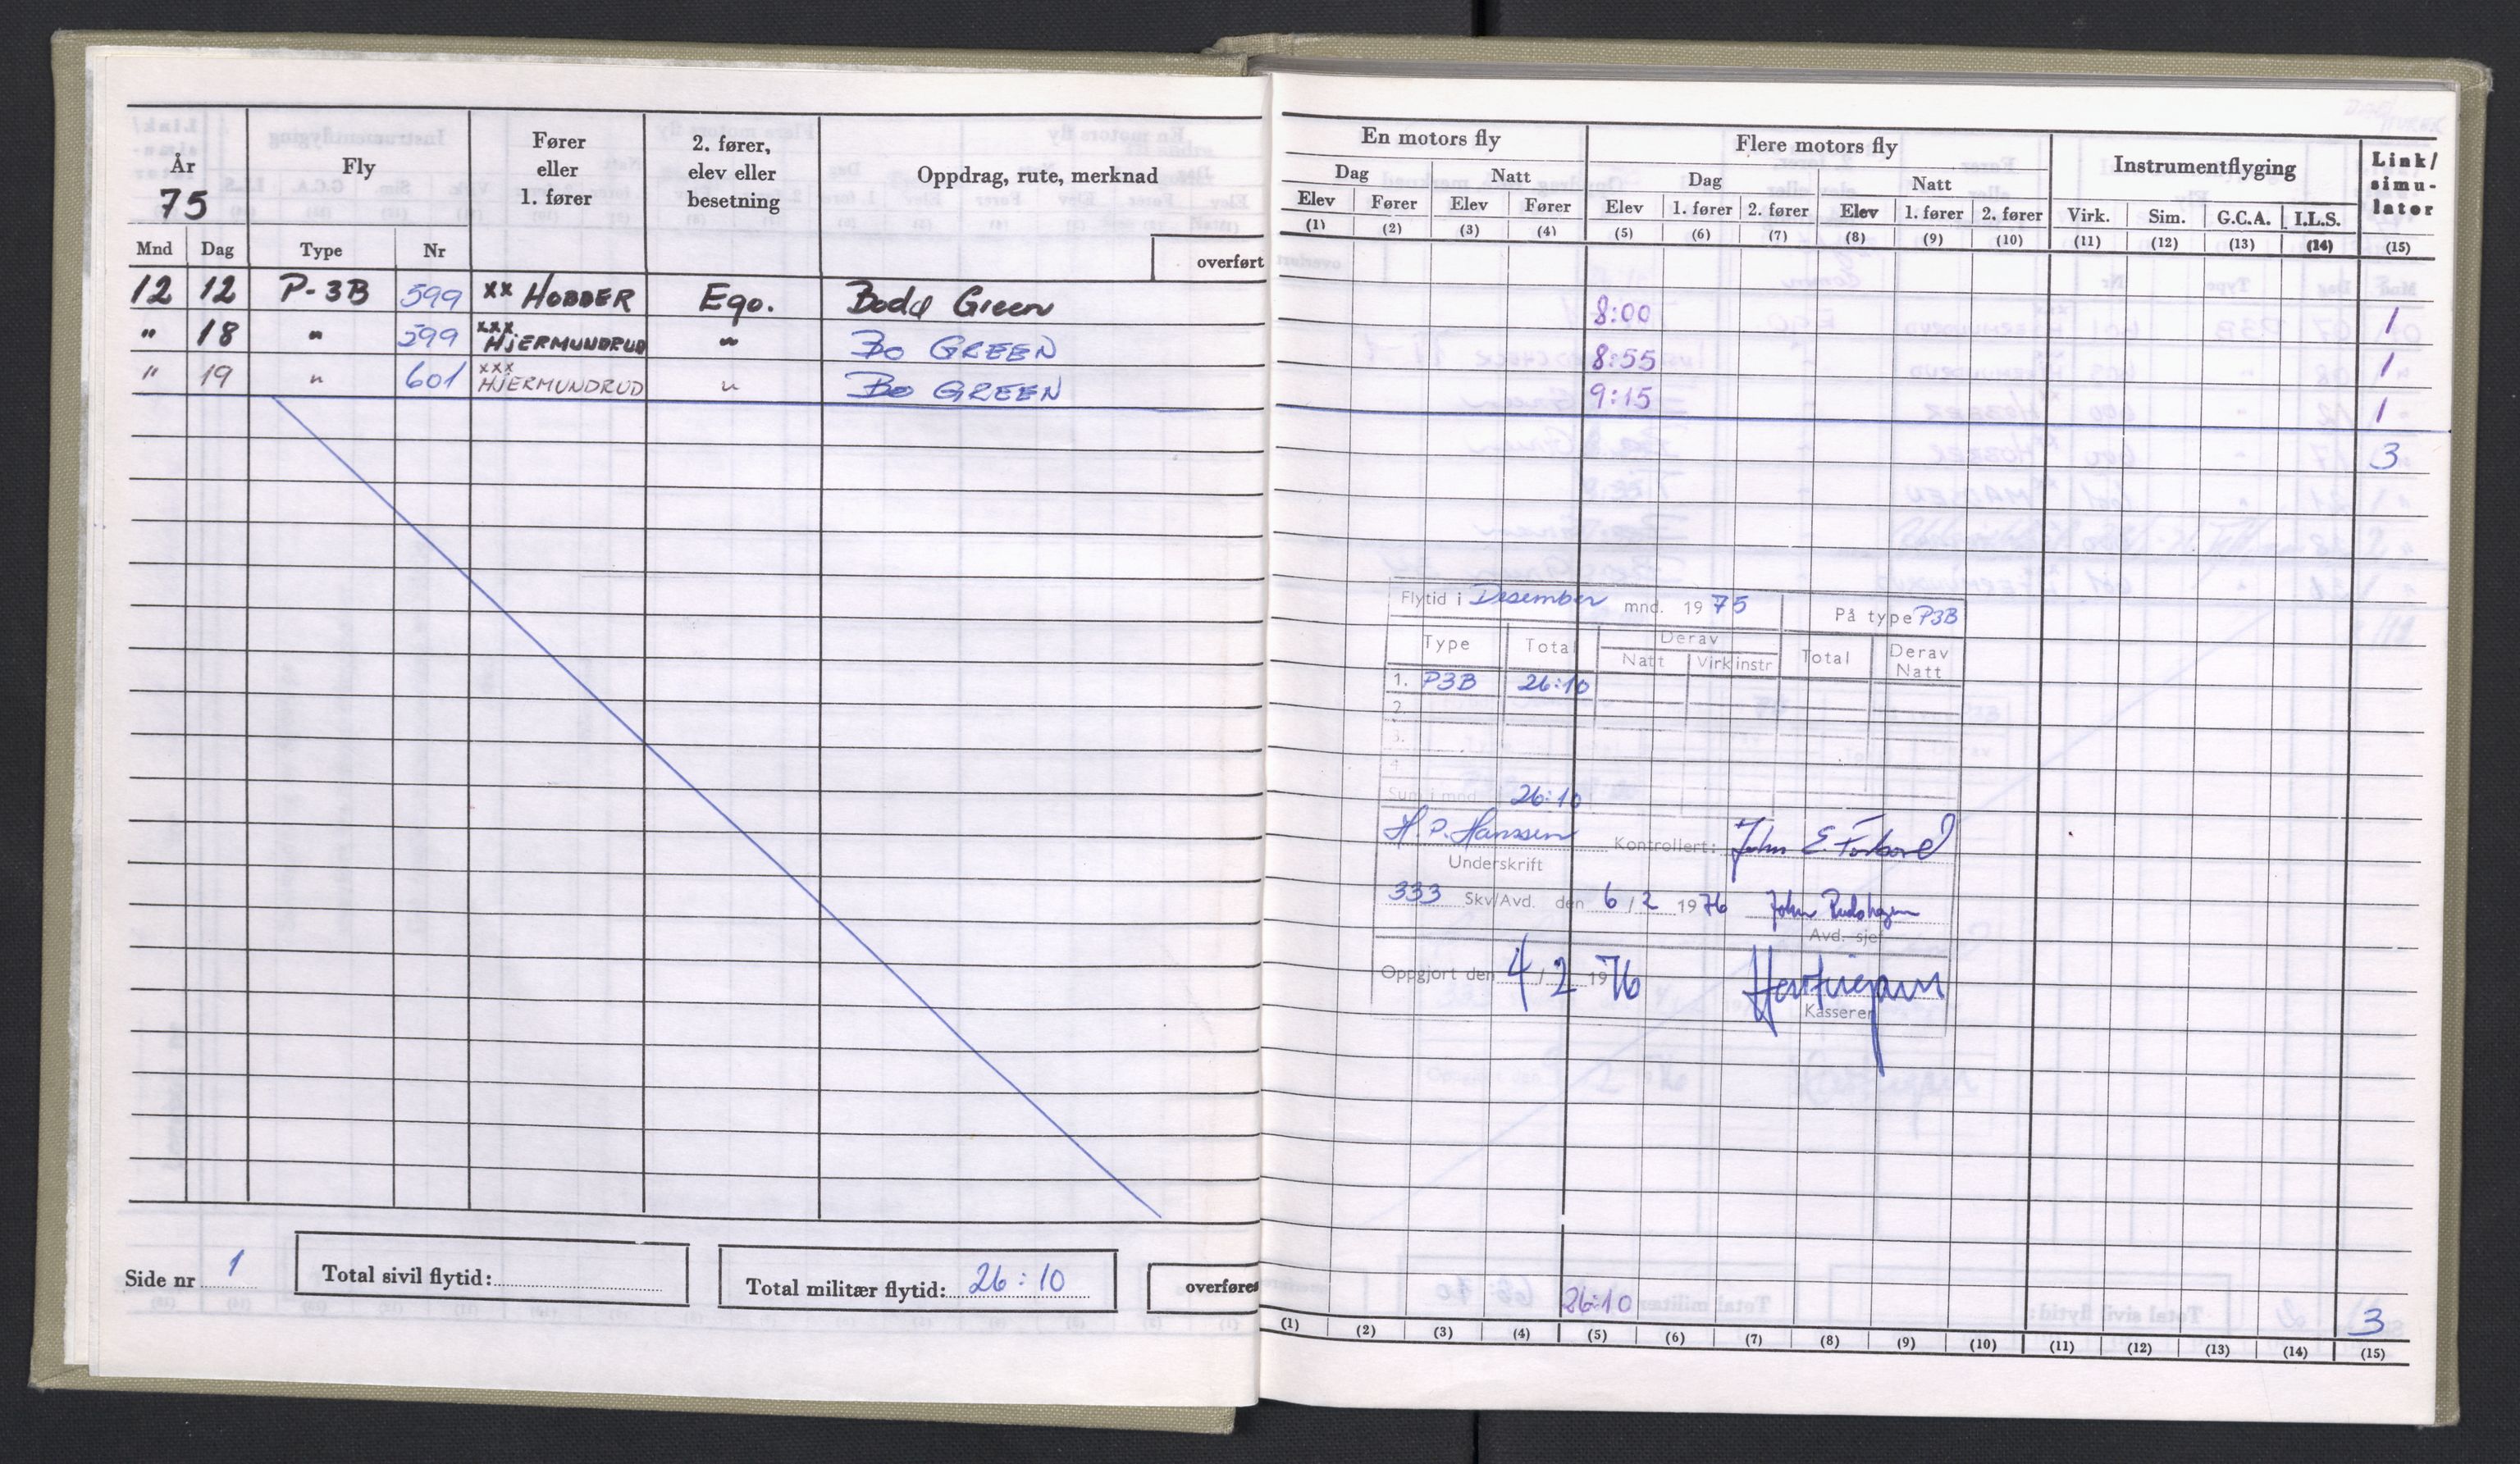 År
75
Fly
Fører
eller
1. fører
2. fører,
elev eller
besetning
Oppdrag, rute, merknad
Mnd Dag Type Nr overført
12 12 P-3B 599 xx HOBBER Ego. Bodø Green
" 18 " 599 xxx HJERMUNDRUD " Bo GREEN
" 19 " 601 xxx HJERMUNDRUD " Bo GREEN
Side nr 1
Total sivil flytid:
Total militær flytid: 26:10
overføres
En motors fly Flere motors fly Instrumentflyging Link/
simu-
lator
Dag Natt Dag Natt
Elev Fører Elev Fører Elev 1. fører 2. fører Elev 1. fører 2. fører Virk. Sim. G.C.A. I.L.S.
(1) (2) (3) (4) (5) (6) (7) (8) (9) (10) (11) (12) (13) (14) (15)
8:00 1
8:55 1
9:15 1
3
Flytid i Desember mnd. 1975 På type P3B
Type Total Derav Total Derav
Natt Virk instr Natt
1. P3B 26:10
2.
3.
4.
Sum i mnd. 26:10
H. P. Hanssen Kontrollert: John E.
Underskrift
333 Skv/Avd. den 6/2 1976 John
Avd. sjef
Oppgjort den 4/2 1976
Kasserer
26:10 3
(1) (2) (3) (4) (5) (6) (7) (8) (9) (10) (11) (12) (13) (14) (15)